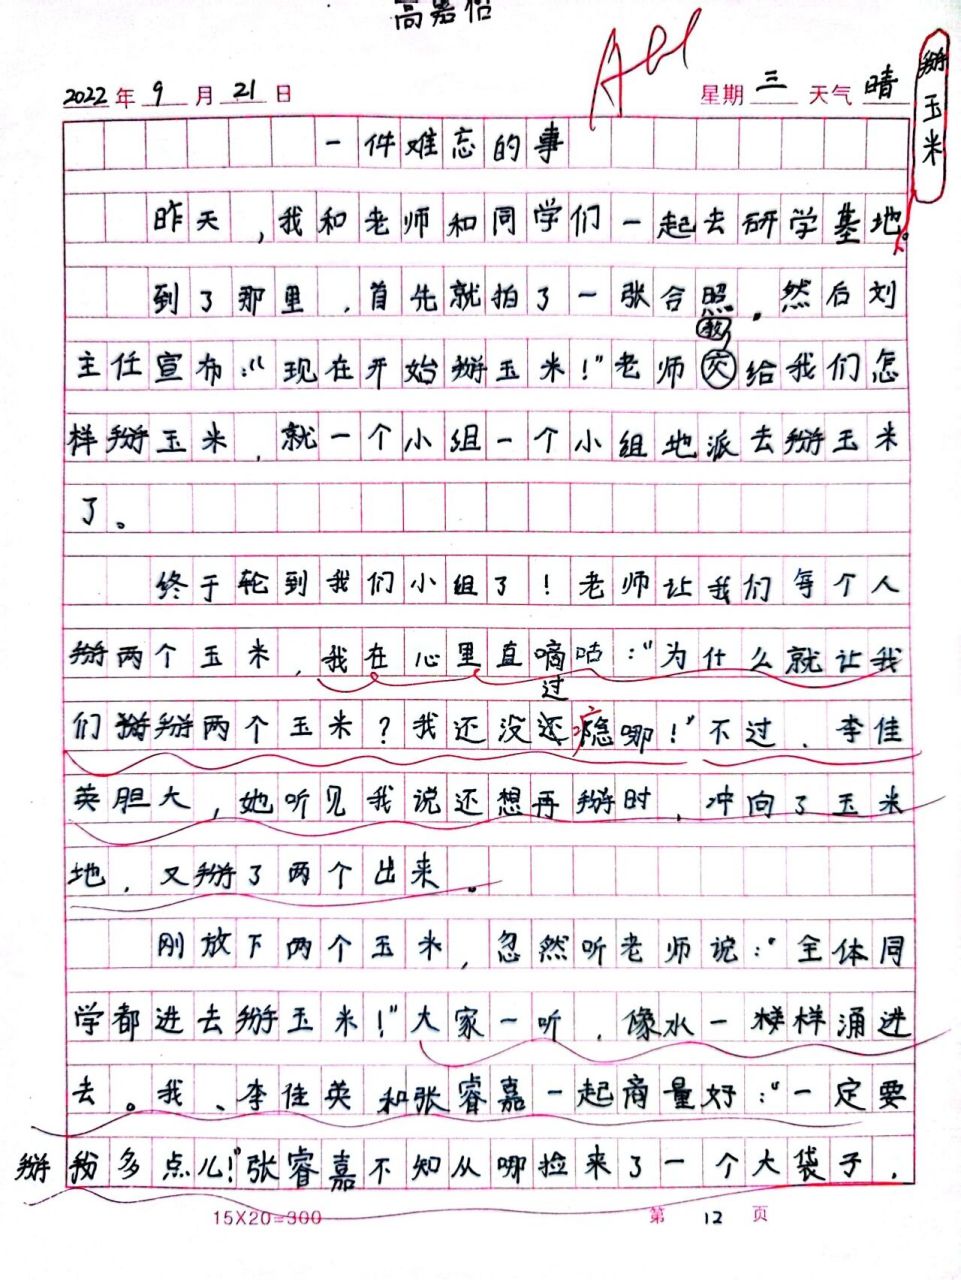 高嘉
2022年 9 月 21 日 星期 三 天气 晴
掰玉米
一件难忘的事
昨天，我和老师和同学们一起去研学基地。
到了那里，首先就拍了一张合照。然后刘
教
主任宣布：“现在开始掰玉米！”老师交给我们怎
样掰玉米，就一个小组一个小组地派去掰玉米
了。
终于轮到我们小组了！老师让我们每个人
掰两个玉米，我在心里直嘀咕：“为什么就让我
过
们掰掰两个玉米？我还没还瘾哪！”不过，李佳
英胆大，她听见我说还想再掰时，冲向了玉米
地，又掰了两个出来。
刚放下两个玉米，忽然听老师说：“全体同
学都进去掰玉米！”大家一听，像水一样样涌进
去。我、李佳英和张睿嘉一起商量好：“一定要
掰多点儿！”张睿嘉不知从哪捡来了一个大袋子，
15X20=300 第 12 页